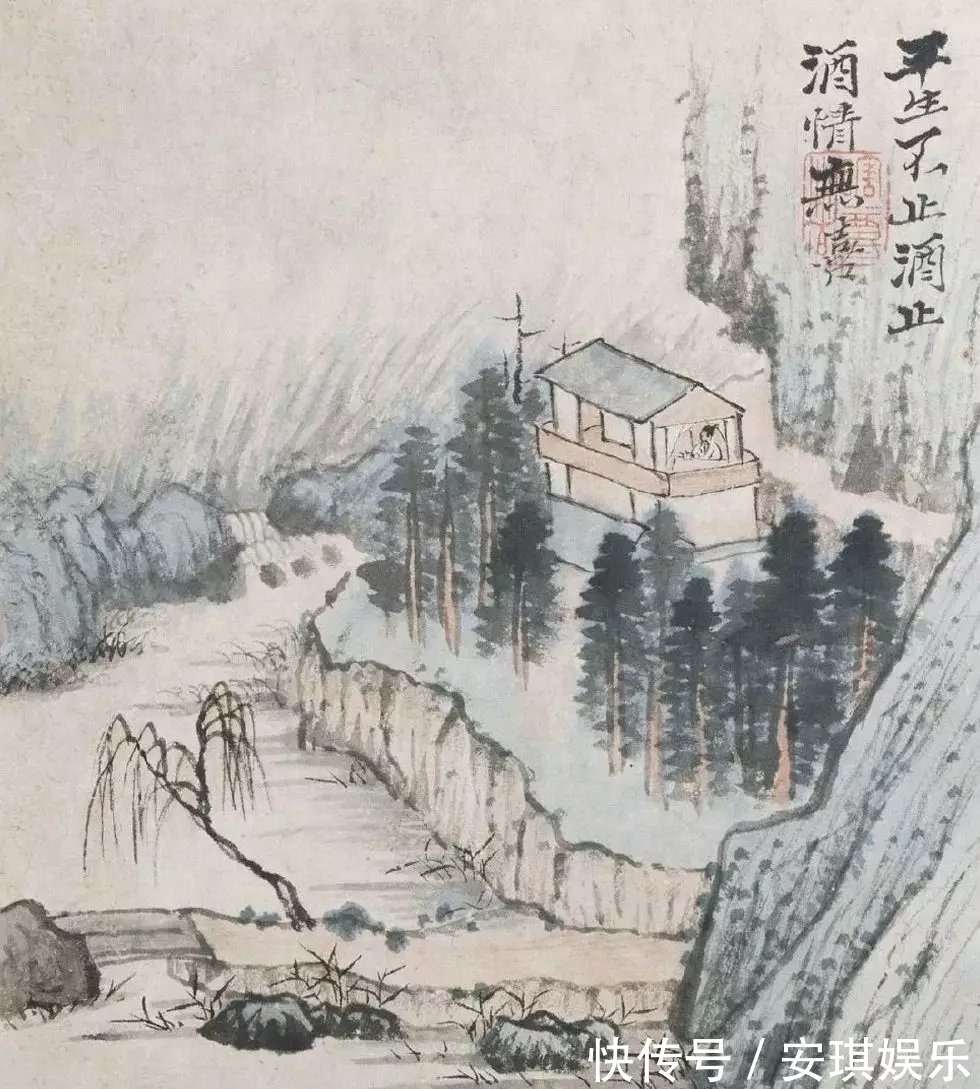 平生不止酒止
酒情無喜
快传号 / 安琪娱乐